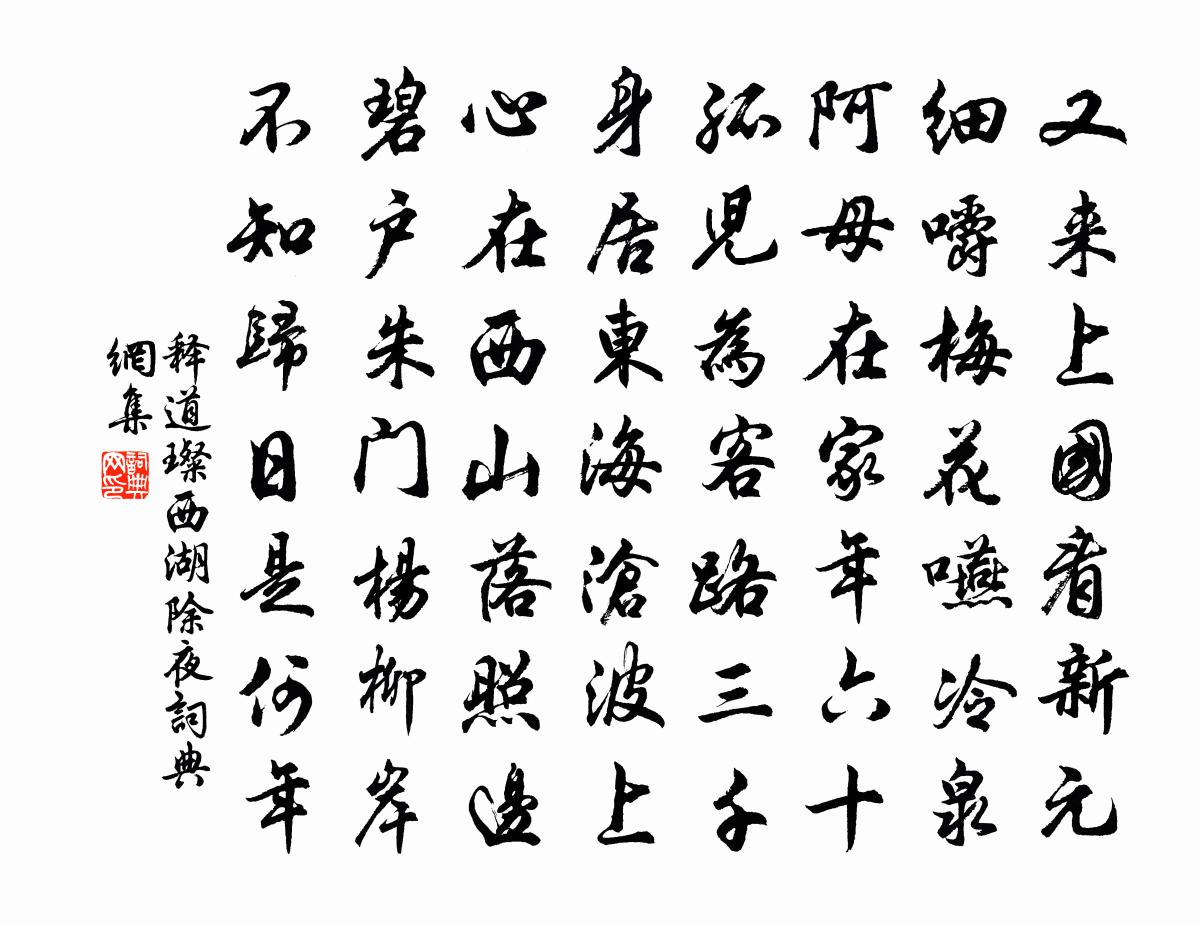 又来上國看新元
細嚼梅花嚥冷泉
阿母在家年六十
孤児為客路三千
身居東海滄波上
心在西山落照邊
碧户朱门楊柳岸
不知歸日是何年
释道璨西湖除夜詞典
網集
詞典
网印